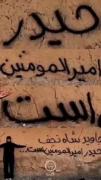 حیدر
امیرالمومنین
است
جاوید شاه نجف
حیدر امیرالمومنین است...